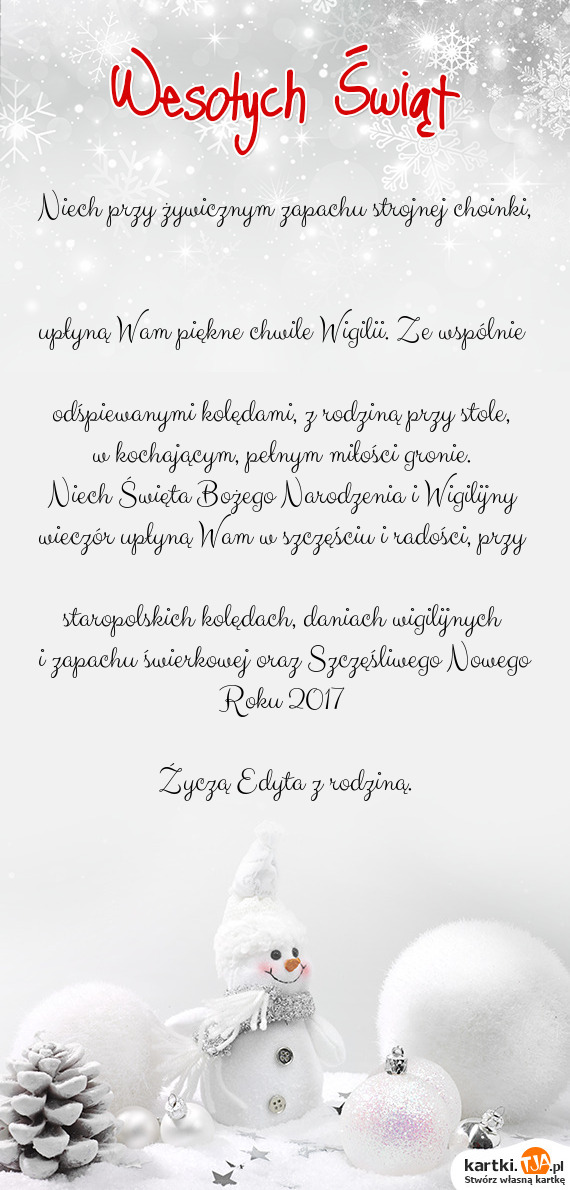 Wesołych Świąt
Niech przy żywicznym zapachu strojnej choinki,
upłyną Wam piękne chwile Wigilii. Ze wspólnie
odśpiewanymi kolędami, z rodziną przy stole,
w kochającym, pełnym miłości gronie.
Niech Święta Bożego Narodzenia i Wigilijny
wieczór upłyną Wam w szczęściu i radości, przy
staropolskich kolędach, daniach wigilijnych
i zapachu świerkowej oraz Szczęśliwego Nowego
Roku 2017
Życzą Edyta z rodziną.
kartki.TJA.pl
Stwórz własną kartkę